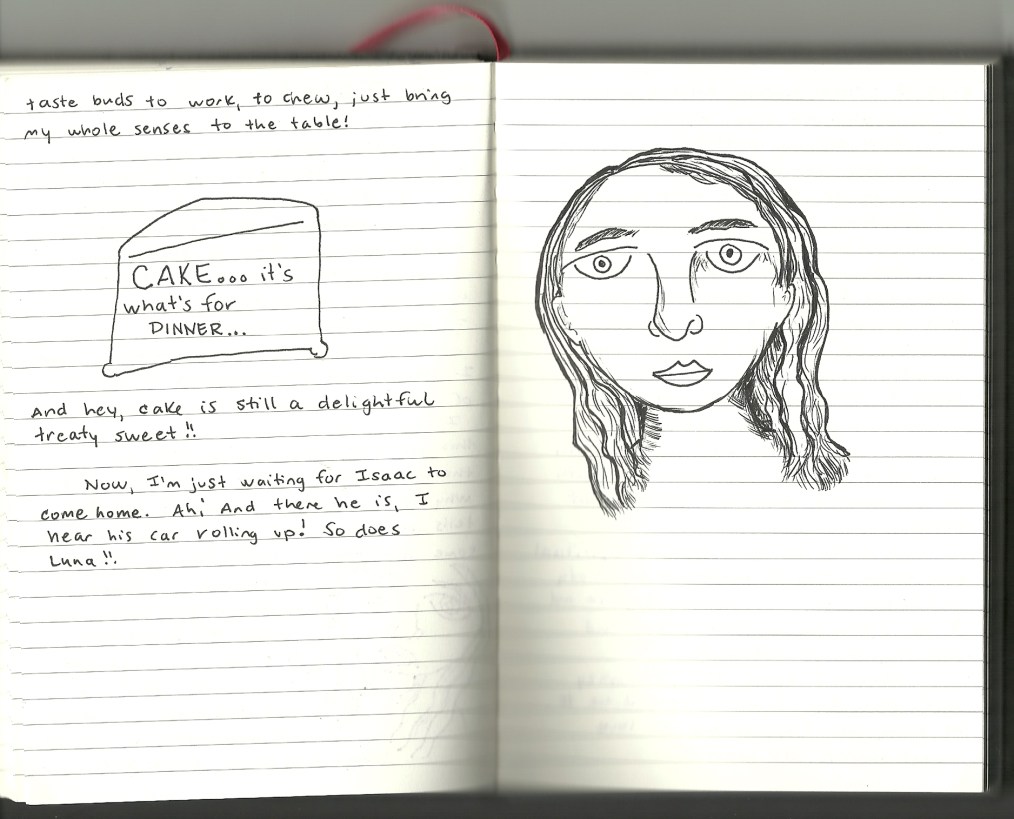 taste buds to work, to chew, just bring
my whole senses to the table!
CAKE... it's
what's for
DINNER...
And hey, cake is still a delightful
treaty sweet!!
Now, I'm just waiting for Isaac to
come home. Ah! And there he is, I
hear his car rolling up! So does
Luna!!